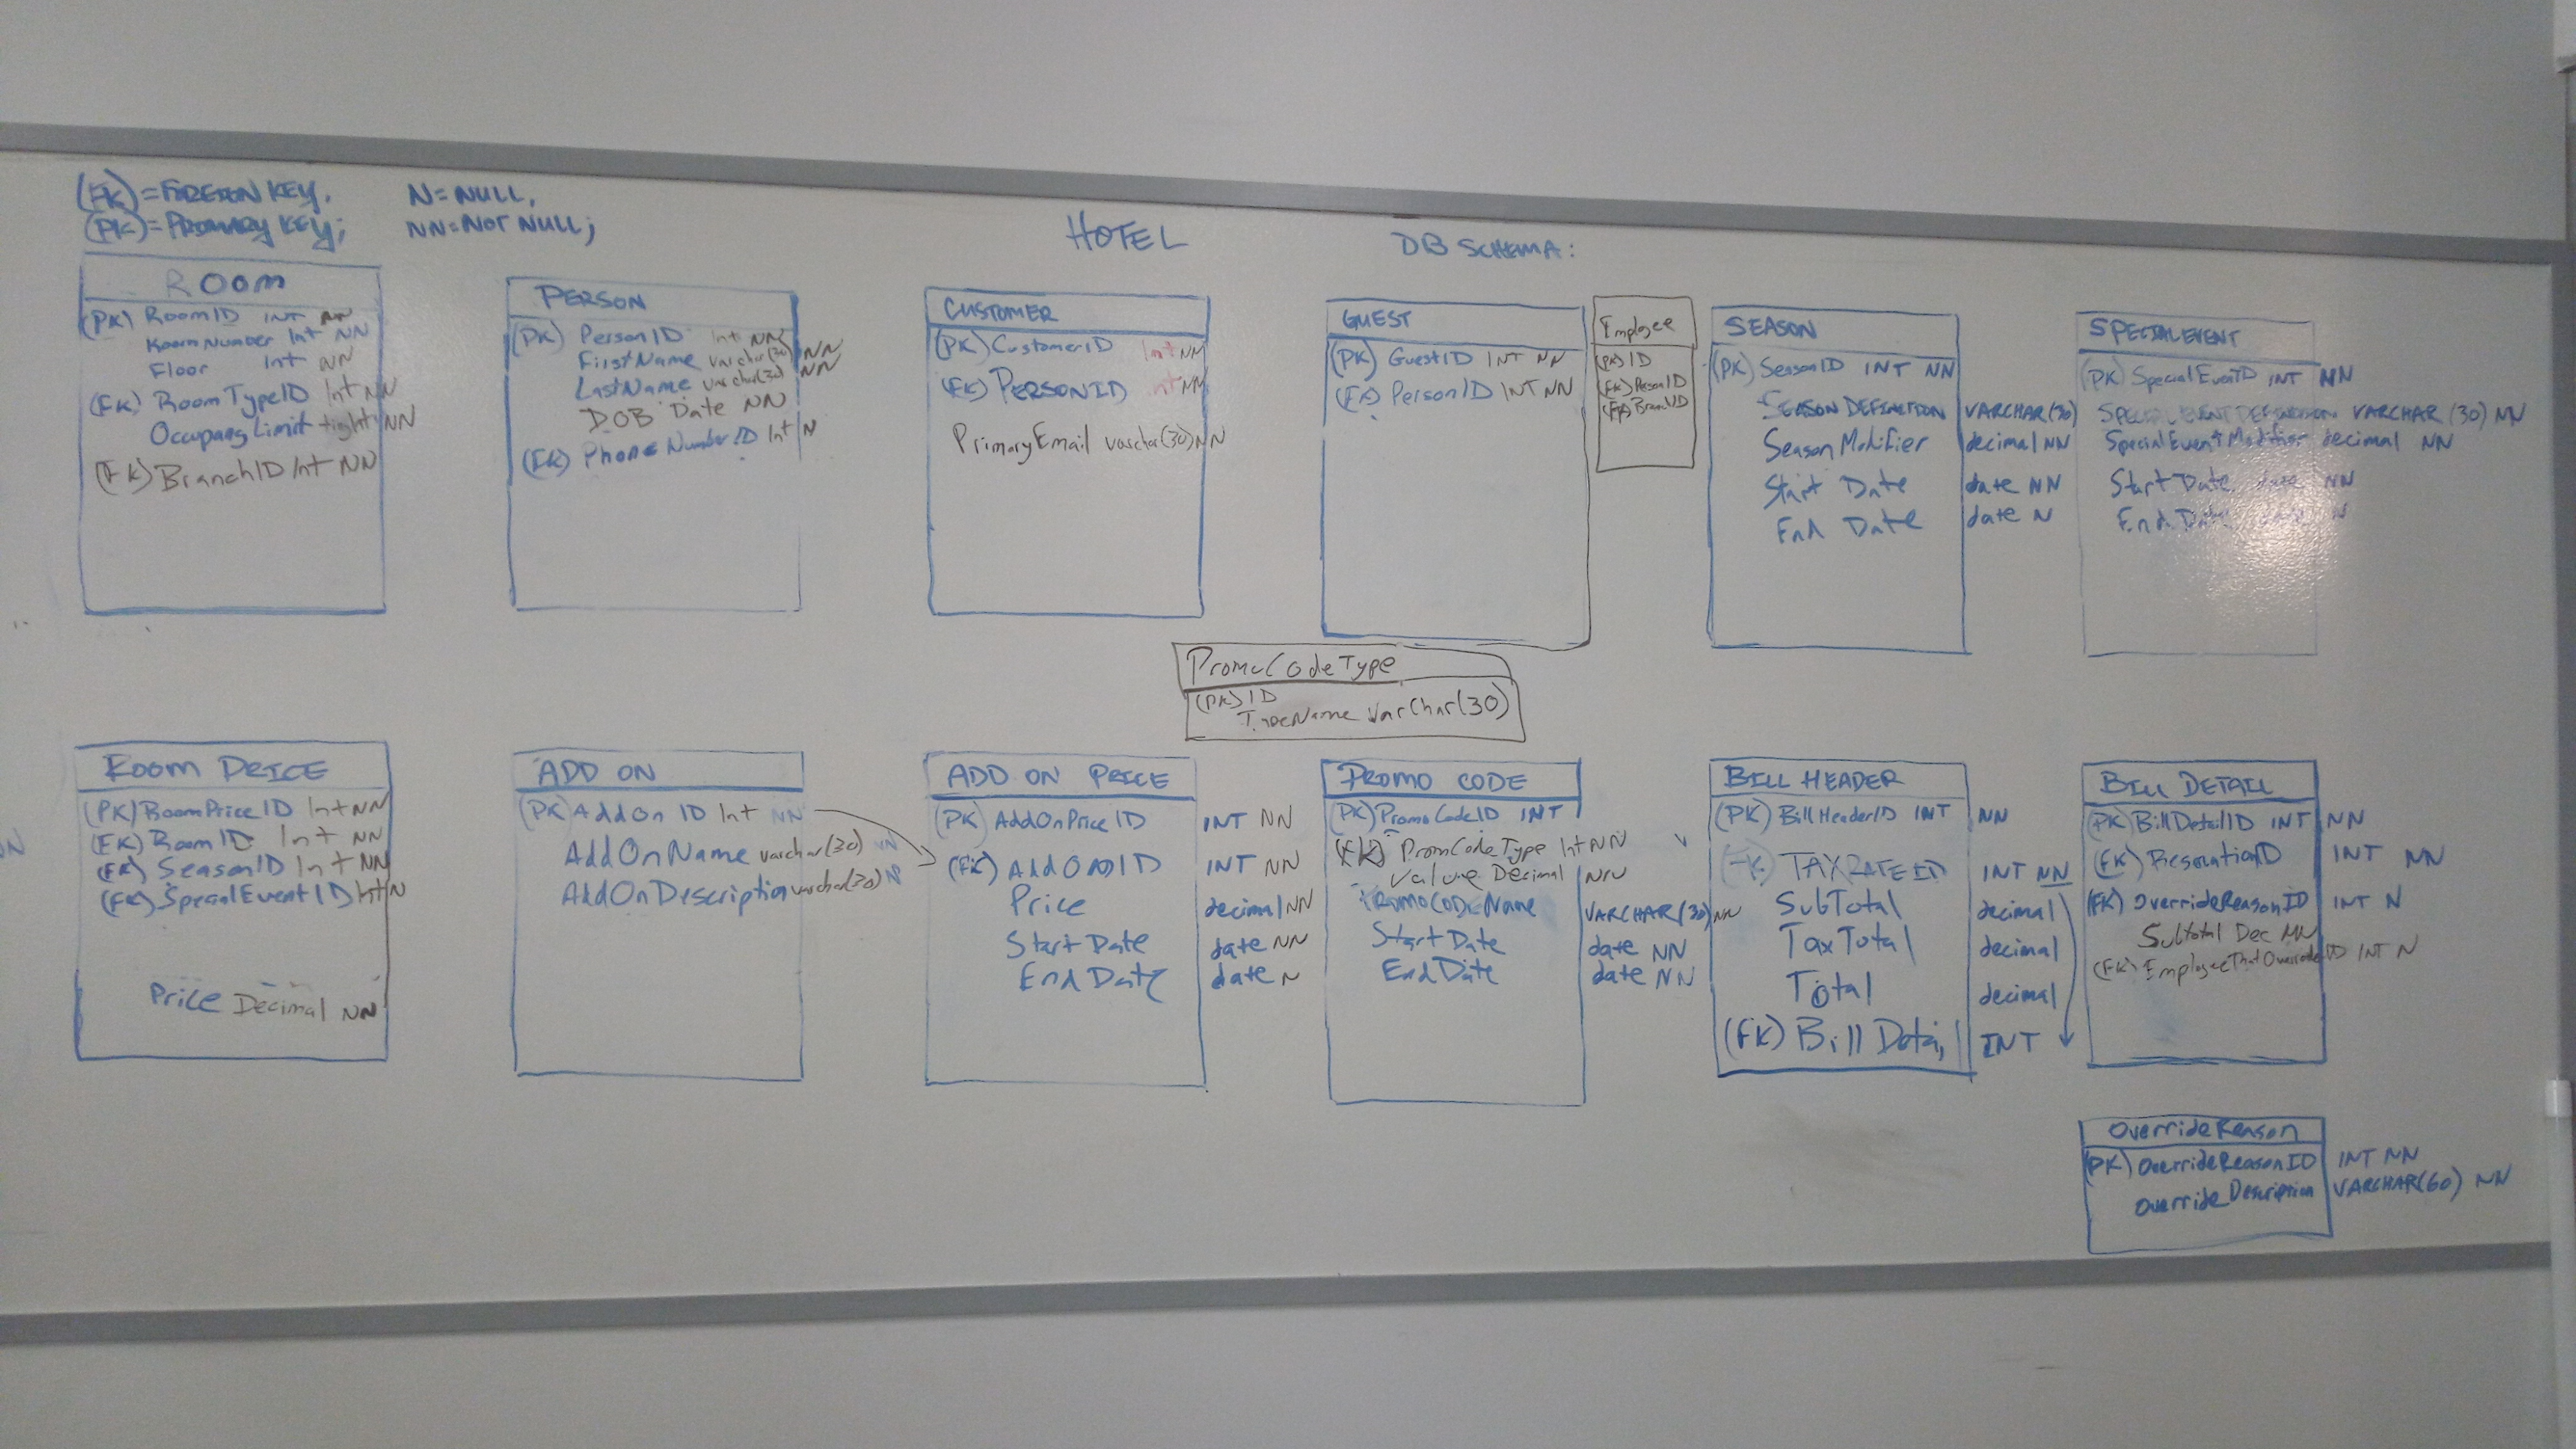 (FK)=FOREIGN KEY, N=NULL,
(PK)=PRIMARY KEY; NN=NOT NULL;
HOTEL DB SCHEMA:
ROOM
(PK) RoomID INT NN
RoomNumber Int NN
Floor Int NN
(FK) RoomTypeID Int NN
Limit NN
(FK) BranchID Int NN
PERSON
(PK) PersonID Int NN
FirstName varchar(30) NN
LastName varchar(30) NN
DOB Date NN
(FK) PhoneNumberID Int N
CUSTOMER
(PK) CustomerID Int NN
(FK) PERSONID Int NN
PrimaryEmail varchar(30) NN
GUEST
(PK) GuestID INT NN
(FK) PersonID INT NN
Employee
(PK) ID
(FK) PersonID
(FK)
SEASON
(PK) SeasonID INT NN
SEASON DEFINITION VARCHAR(30)
SeasonModifier decimal NN
Start Date date NN
End Date date N
SPECIAL EVENT
(PK) SpecialEventID INT NN
SPECIAL EVENT DEFINITION VARCHAR(30) NN
SpecialEventModifier decimal NN
Start Date date NN
End Date date N
PromoCodeType
(PK) ID
TypeName VarChar(30)
ROOM PRICE
(PK) RoomPriceID Int NN
(FK) RoomID Int NN
(FK) SeasonID Int NN
(FK) SpecialEventID Int N
Price Decimal NN
ADD ON
(PK) AddOn ID Int NN
AddOnName varchar(30) NN
AddOnDescription varchar(30)
ADD ON PRICE
(PK) AddOnPriceID INT NN
(FK) AddOnID INT NN
Price decimal NN
Start Date date NN
End Date date N
PROMO CODE
(PK) PromoCodeID INT
(FK) PromCodeType Int NN
Value Decimal NN
PROMOCODEName VARCHAR(30) NN
Start Date date NN
End Date date NN
BILL HEADER
(PK) BillHeaderID INT NN
(FK) TAXRATEID INT NN
SubTotal decimal
Tax Total decimal
Total decimal
(FK) Bill Detai INT
BILL DETAIL
(PK) BillDetailID INT NN
(FK) INT NN
(FK) OverrideReasonID INT N
Subtotal Dec NN
(FK) EmployeeThatOverrodeID INT N
OverrideReason
(PK) OverrideReasonID INT NN
Override Description VARCHAR(60) NN